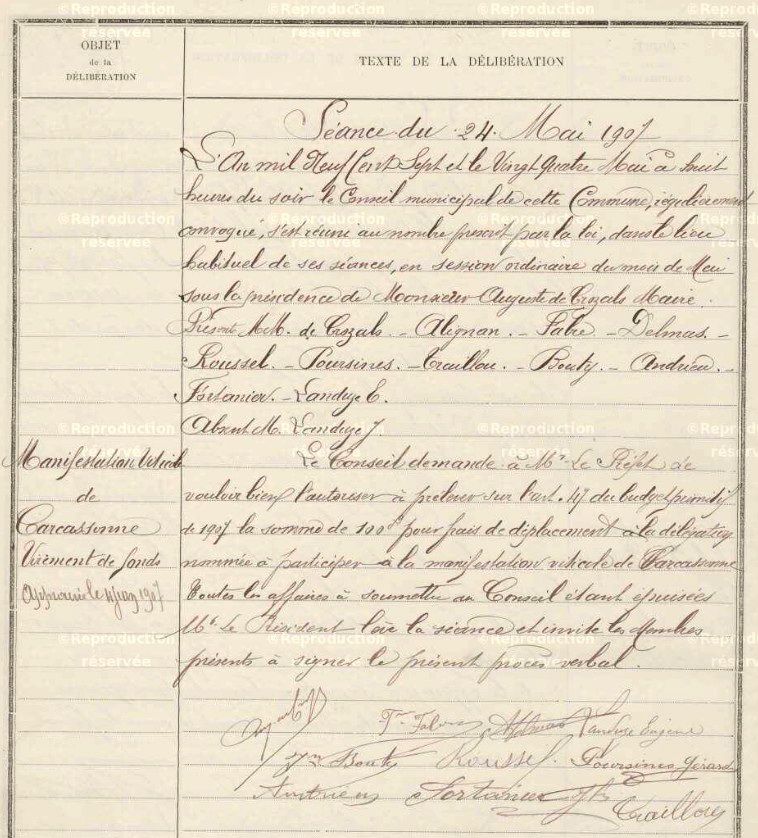 OBJET
de la
DÉLIBÉRATION
TEXTE DE LA DÉLIBÉRATION
Séance du 24 Mai 1907
L'An mil Neuf Cent Sept et le Vingt Quatre Mai à huit
heures du soir le Conseil municipal de cette Commune, régulièrement
convoqué, s'est réuni au nombre prescrit par la loi, dans le lieu
habituel de ses séances, en session ordinaire du mois de Mai
sous la présidence de Monsieur Auguste de Crozals Maire.
Présent MM. de Crozals - Alignan. - Fabre - Delmas. -
Roussel. - Poursines. - Craillou. - Bouty. - Andrieu. -
Fortanier. - Landuze E.
Absent M. Landuze J.
Manifestation Viticole
de
Carcassonne
Virement de fonds
Approuvé le juin 1907
Le Conseil demande à Mr Le Préfet de
vouloir bien l'autoriser à prélever sur l'art. 47 du budget primitif
de 1907 la somme de 100f pour frais de déplacement à la délégation
nommée à participer à la manifestation viticole de Carcassonne
Toutes les affaires à soumettre au Conseil étant épuisées
Mr Le Président lève la séance et invite les Membres
présents à signer le présent procès verbal.
Landuze Eugène
Bouty Roussel. Poursines Gérard
Andrieu Fortanier Craillou
©Reproduction
réservée